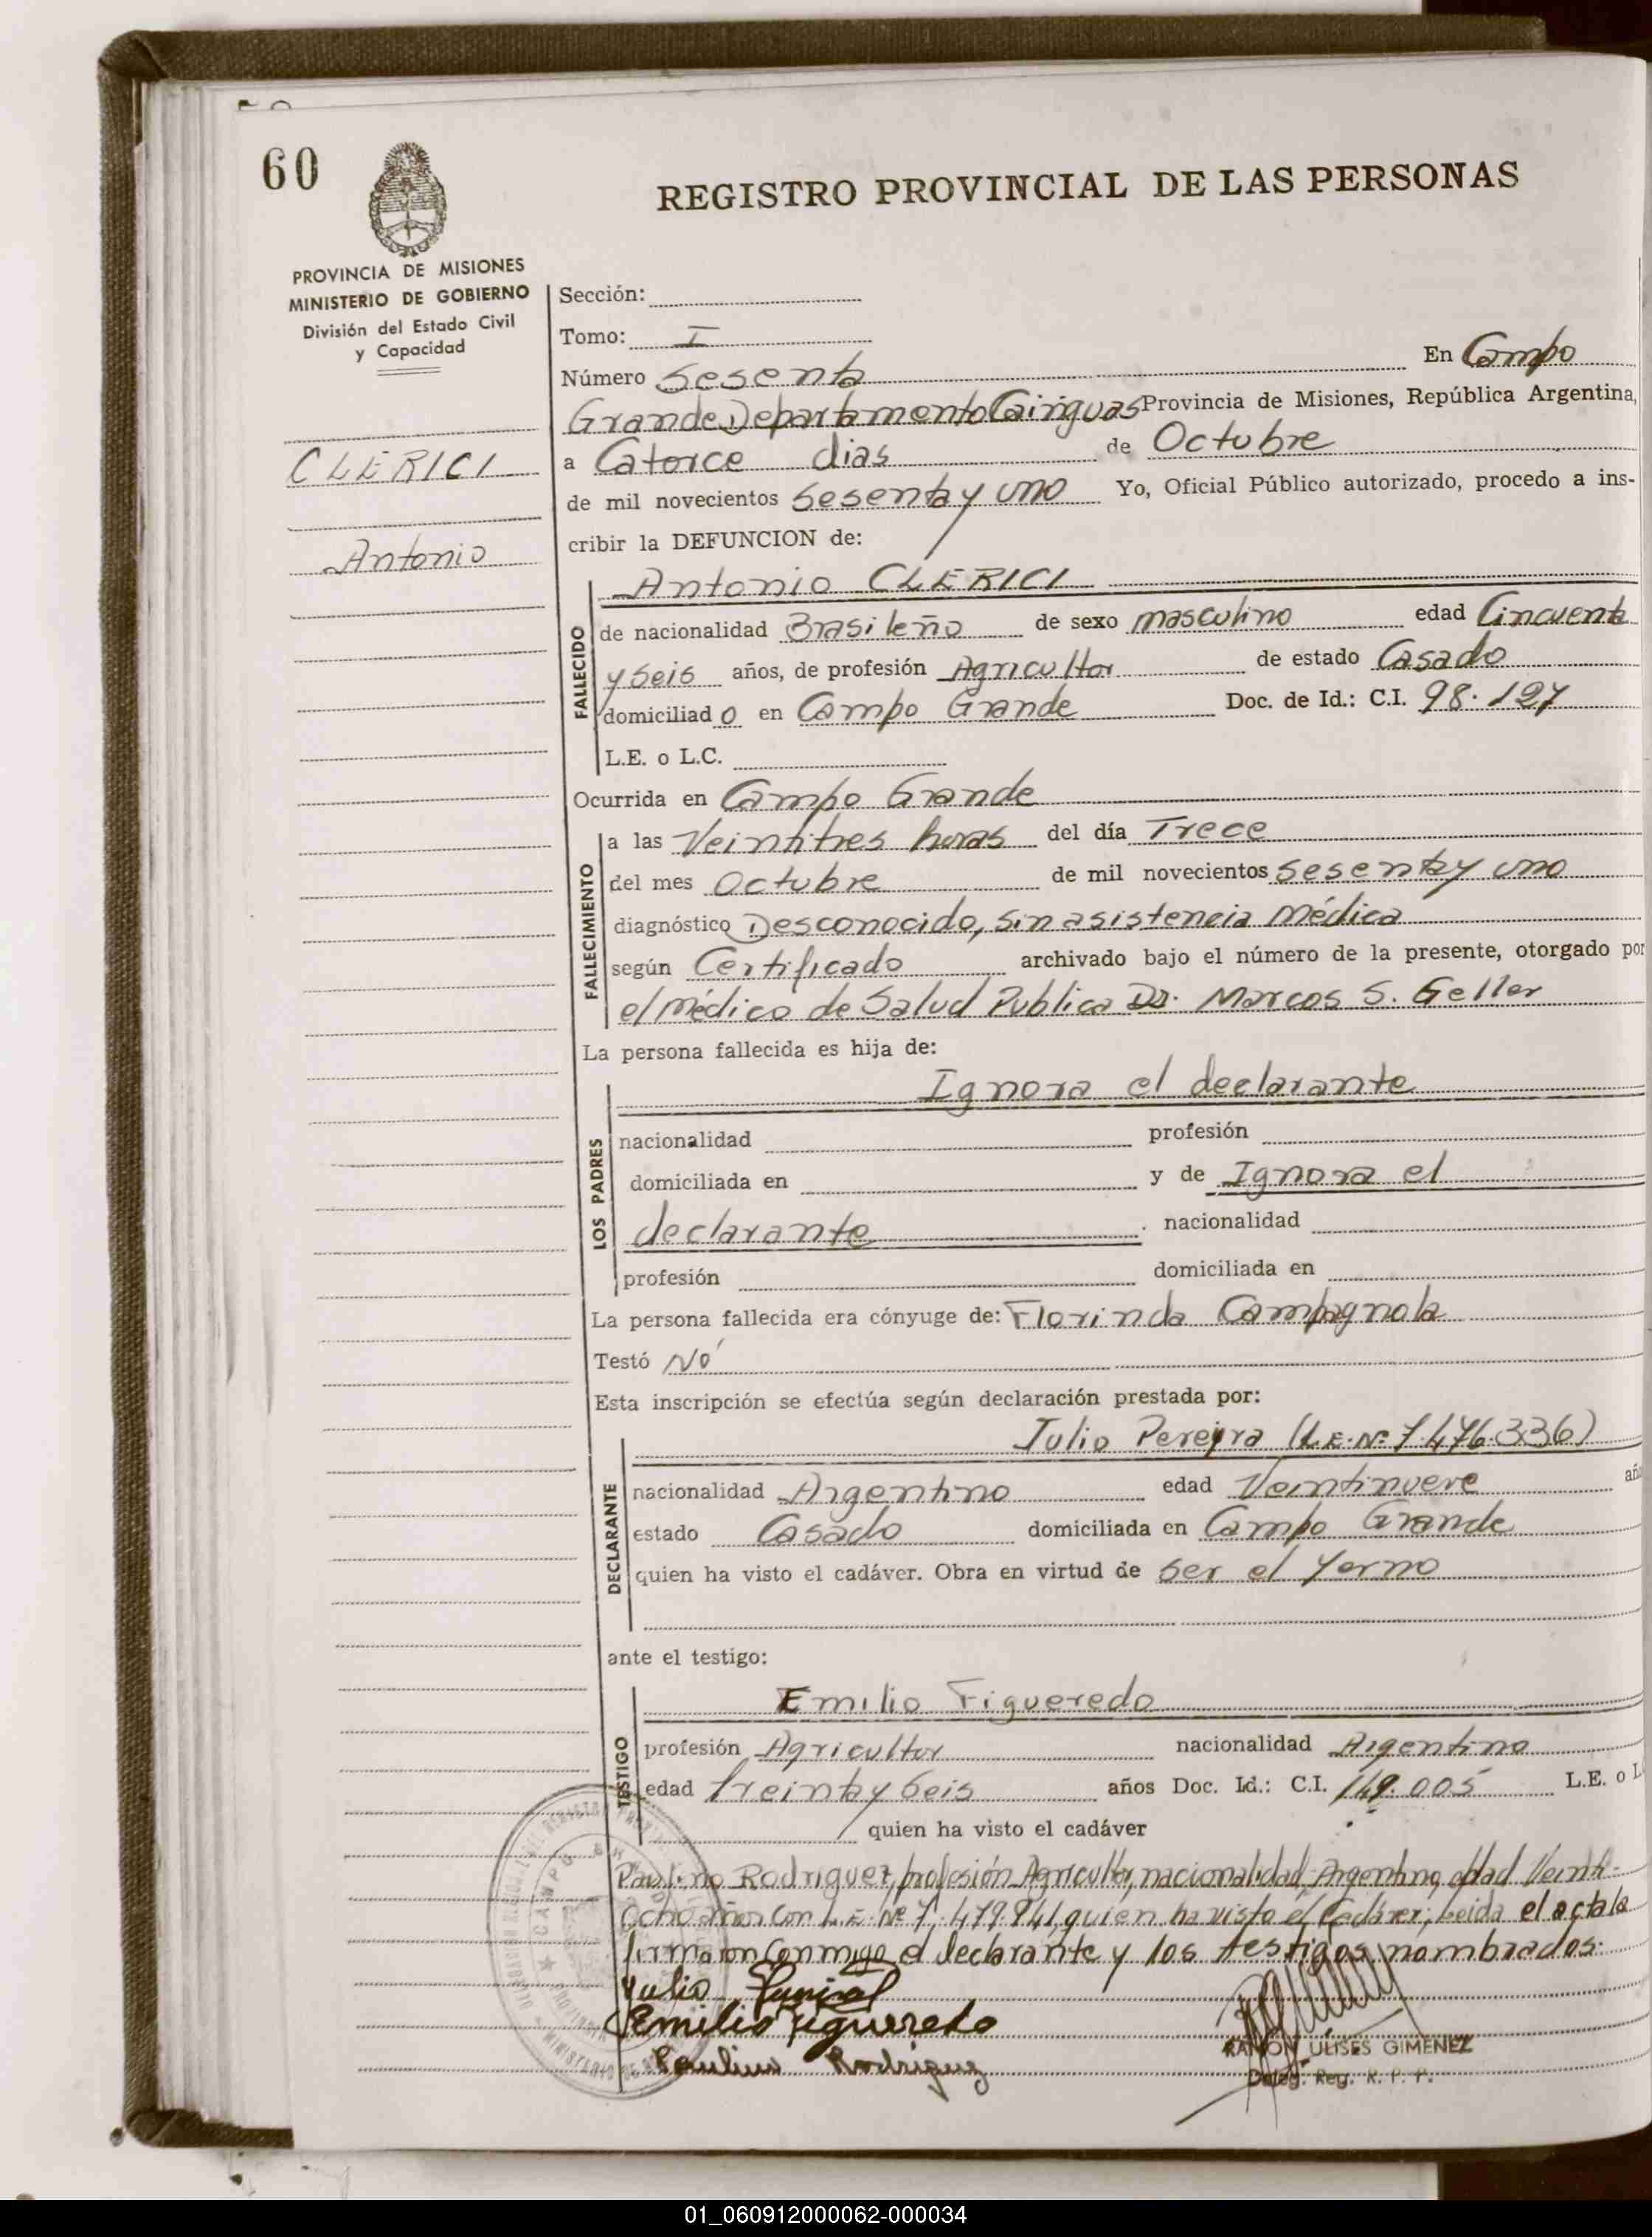 60
REGISTRO PROVINCIAL DE LAS PERSONAS
PROVINCIA DE MISIONES
MINISTERIO DE GOBIERNO
División del Estado Civil
y Capacidad
CLERICI
Antonio
Sección:
Tomo: I
Número Sesenta En Campo
Grande Departamento Cainguas Provincia de Misiones, República Argentina,
a Catorce dias de Octubre
de mil novecientos Sesenta y uno Yo, Oficial Público autorizado, procedo a ins-
cribir la DEFUNCION de:
FALLECIDO
Antonio CLERICI
de nacionalidad Brasileño de sexo masculino edad Cincuenta
y Seis años, de profesión Agricultor de estado Casado
domiciliado en Campo Grande Doc. de Id.: C.I. 98.127
L.E. o L.C.
Ocurrida en Campo Grande
FALLECIMIENTO
a las Veintitres horas del día Trece
del mes Octubre de mil novecientos Sesenta y uno
diagnóstico Desconocido, sin asistencia Médica
según Certificado archivado bajo el número de la presente, otorgado por
el Médico de Salud Publica Dr. Marcos S. Geller
La persona fallecida es hija de:
LOS PADRES
Ignora el declarante
nacionalidad profesión
domiciliada en y de Ignora el
declarante . nacionalidad
profesión domiciliada en
La persona fallecida era cónyuge de: Florinda Campagnola
Testó Nó
Esta inscripción se efectúa según declaración prestada por:
DECLARANTE
Julio Pereyra (L.E. Nº 7.476.336)
nacionalidad Argentino edad Veintinueve añ
estado Casado domiciliada en Campo Grande
quien ha visto el cadáver. Obra en virtud de ser el Yerno
ante el testigo:
TESTIGO
Emilio Figueredo
profesión Agricultor nacionalidad Argentino
edad Treinta y Seis años Doc. Id.: C.I. 149.005 L.E. o L
quien ha visto el cadáver
Paulino Rodriguez, profesión Agricultor, nacionalidad, Argentino, edad Veinti-
Ocho años con L.E. Nº 7.479.841, quien ha visto el Cadáver; leida el acta la
firmaron conmigo el declarante y los testigos nombrados.
Julio
Emilio Figueredo
Paulino Rodriguez
RAMON ULISES GIMENEZ
Deleg. Reg. R. P. P.
01_060912000062-000034